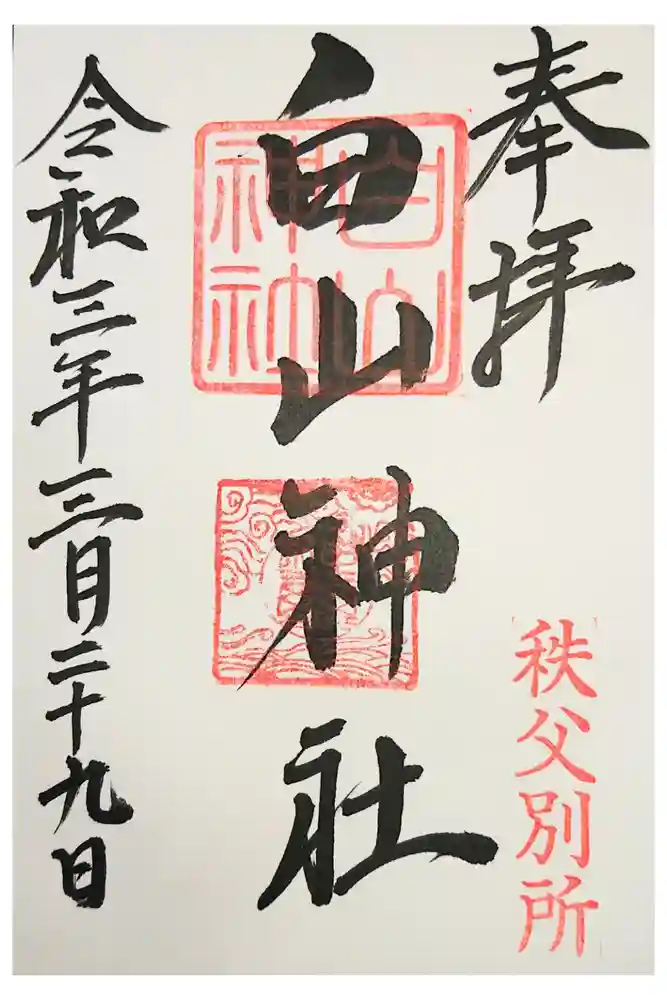 奉拝
秩父別所
白山神社
白山
神社
令和三年三月二十九日